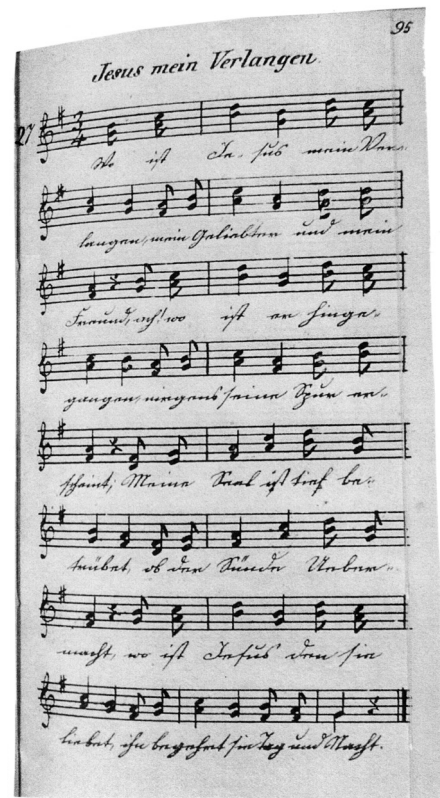 95
Jesus mein Verlangen.
27
3
4
Wo ist Je- sus mein Ver-
langen, mein Geliebter und mein
Freund, ach! wo ist er hinge-
gangen, nirgens seine Spur er-
scheint; Meine Seel ist tief be-
trübet, ob der Sünde Ueber-
macht, wo ist Jesus den sie
liebet, ihn begehrt sie Tag und Nacht.